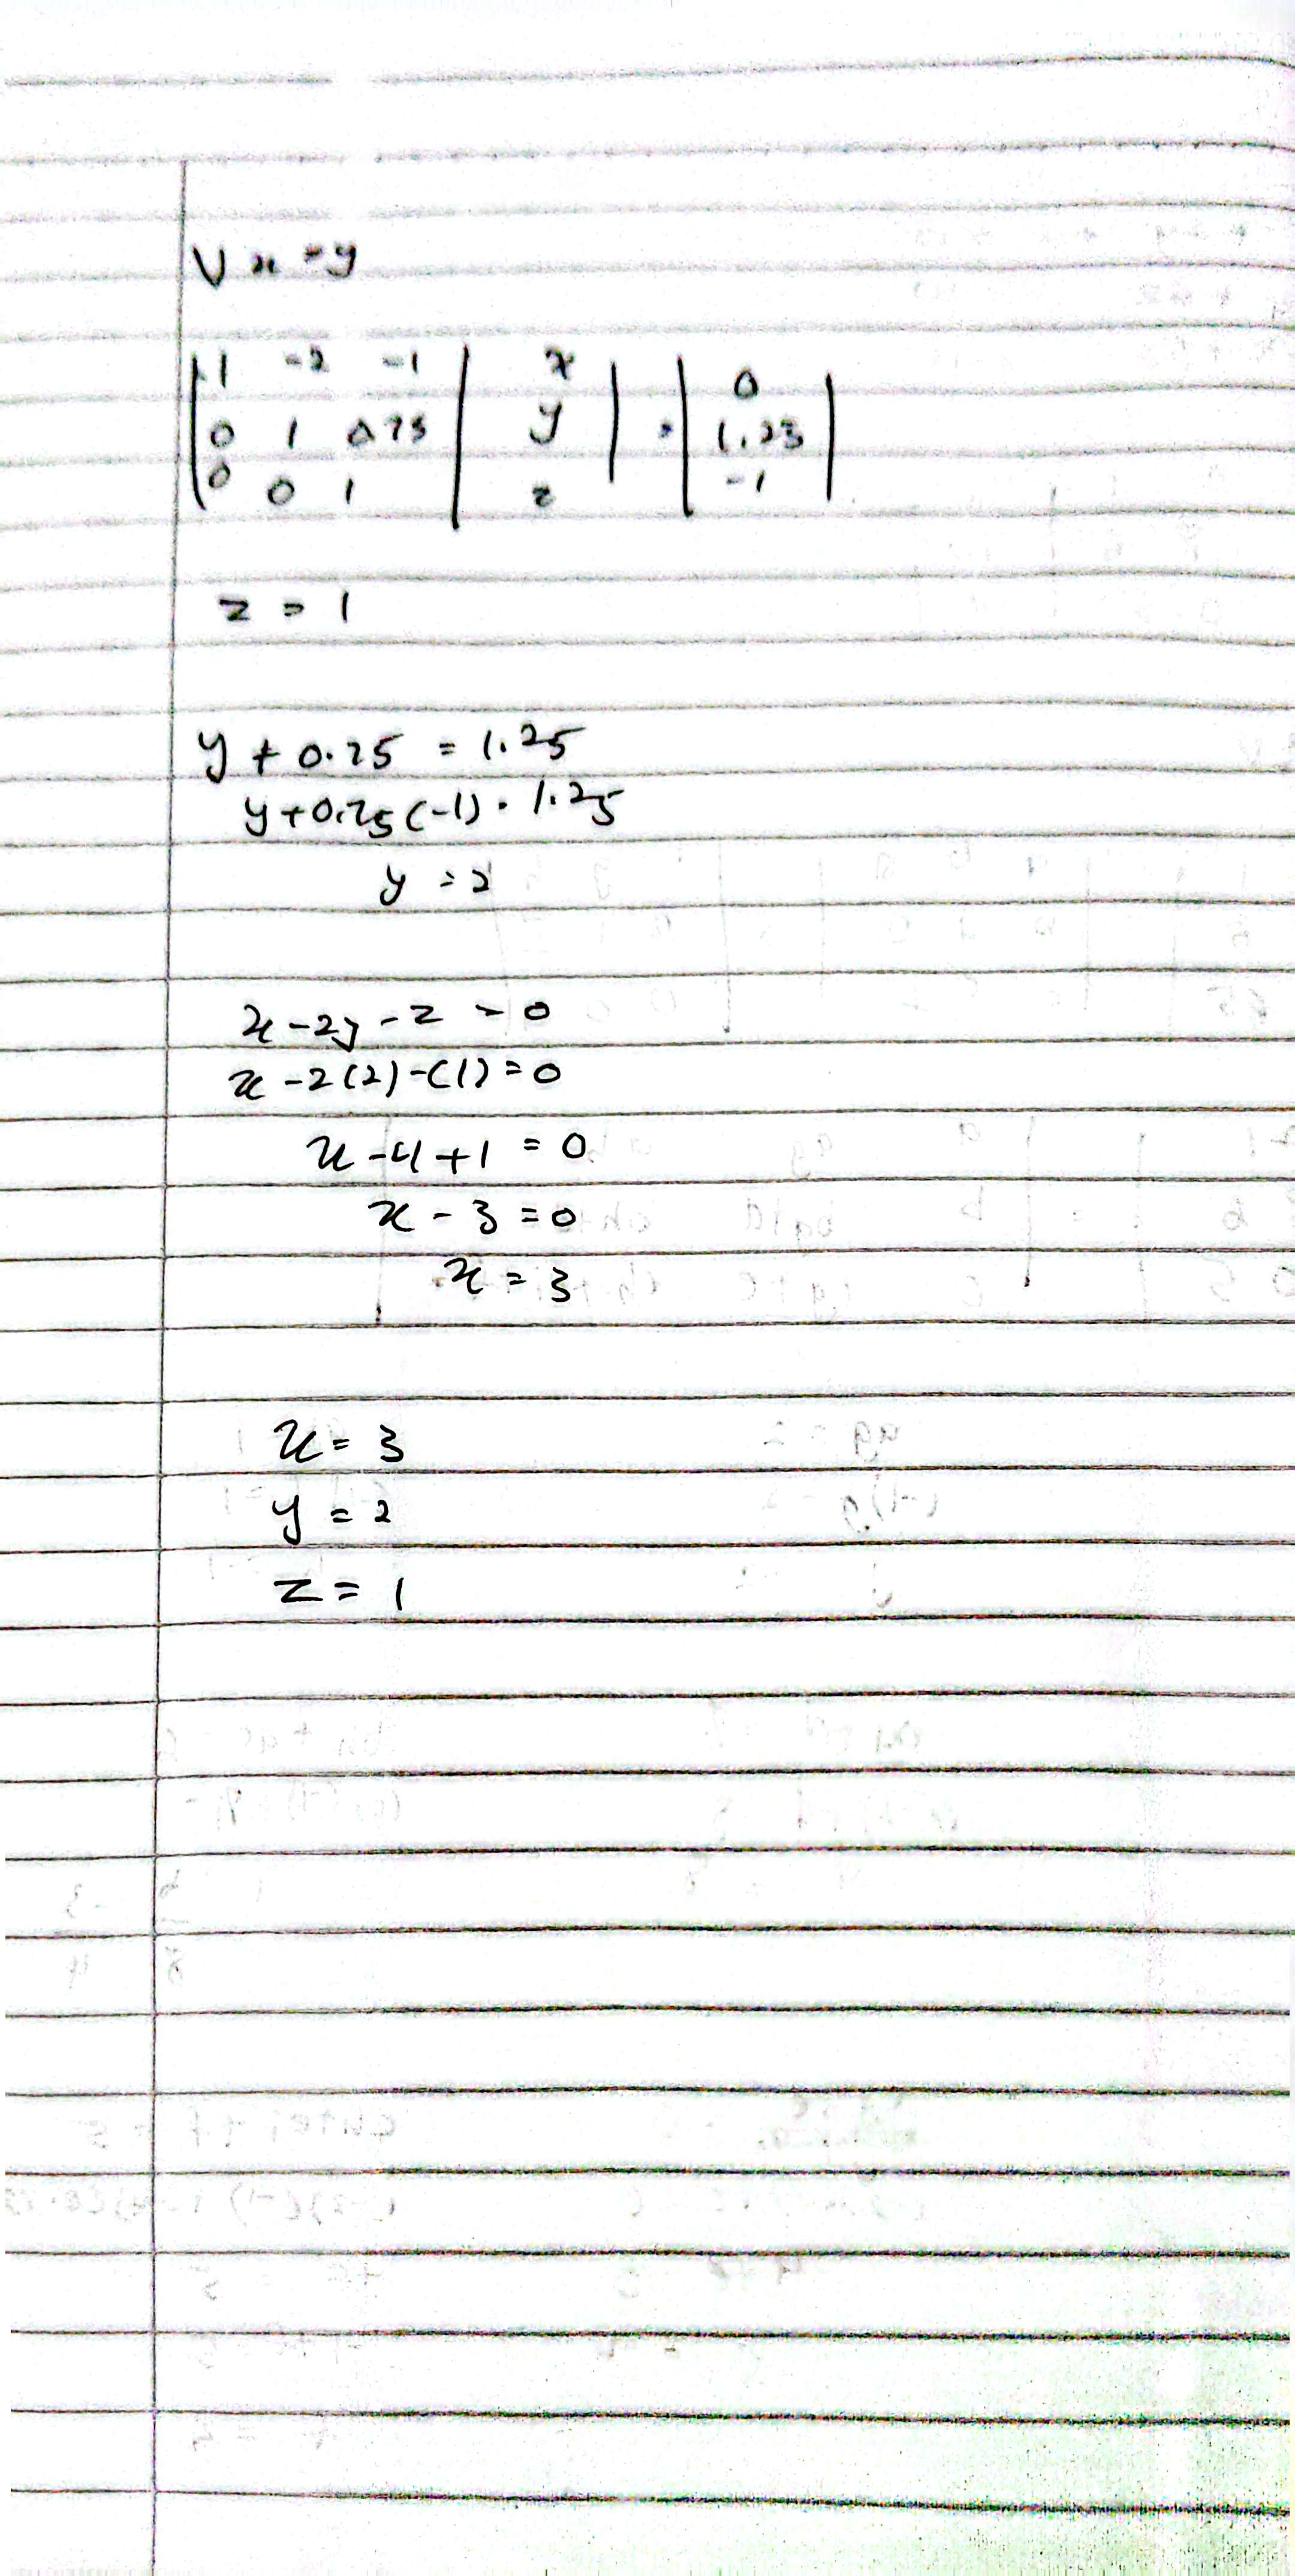 Ux = y
| 1 -2 -1 | x | = | 0 |
| 0 1 0.75 | y | = | 1.25 |
| 0 0 1 | z | | -1 |
z = 1
y + 0.75 = 1.25
y + 0.75 (-1) = 1.25
y = 2
x - 2y - z = 0
x - 2(2) - (1) = 0
x - 4 + 1 = 0
x - 3 = 0
x = 3
x = 3
y = 2
z = 1